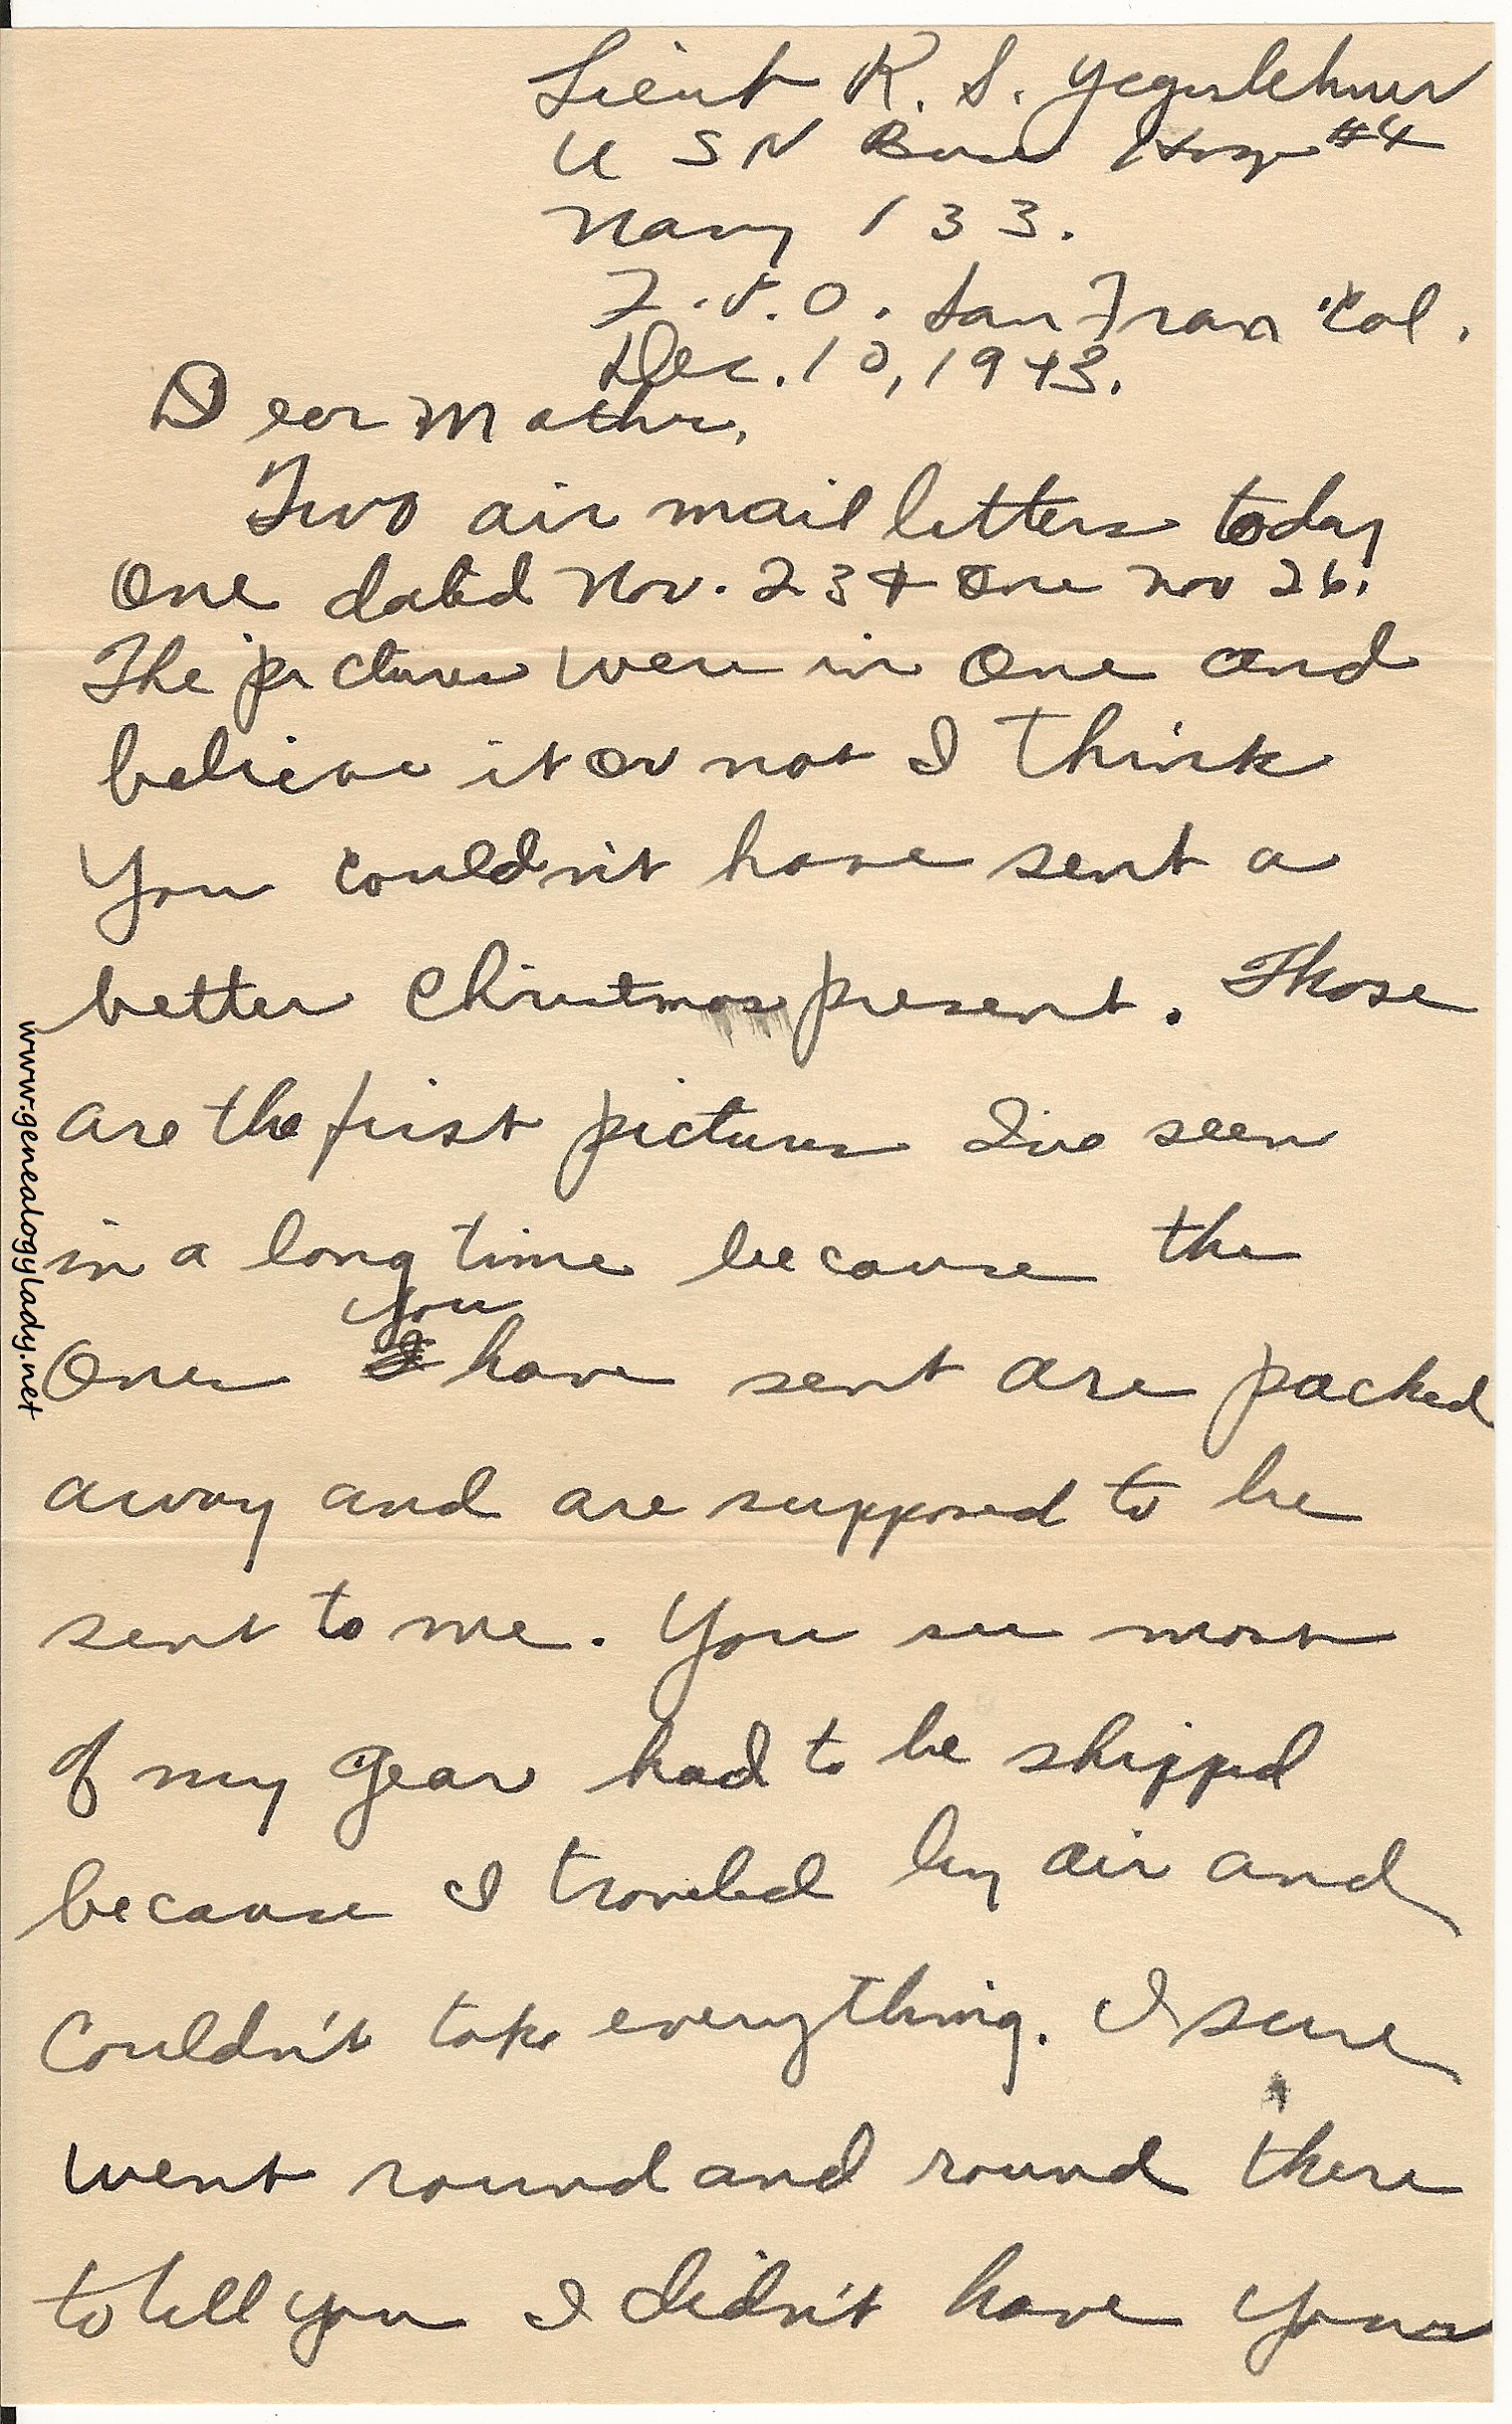 Lieut R. S. Yegerlehner
U S N Base Hosp #4
Navy 133.
F.P.O. San Fran Cal.
Dec. 10, 1943.
Dear Mother,
Two air mail letters today
One dated Nov. 23 & one Nov 26.
The pictures were in one and
believe it or not I think
you couldn't have sent a
better Christmas present. Those
are the first pictures I've seen
in a long time because the
you
ones I have sent are packed
away and are supposed to be
sent to me. You see most
of my gear had to be shipped
because I traveled by air and
couldn't take everything. I sure
went round and round there
to tell you I didn't have your
www.genealogylady.net